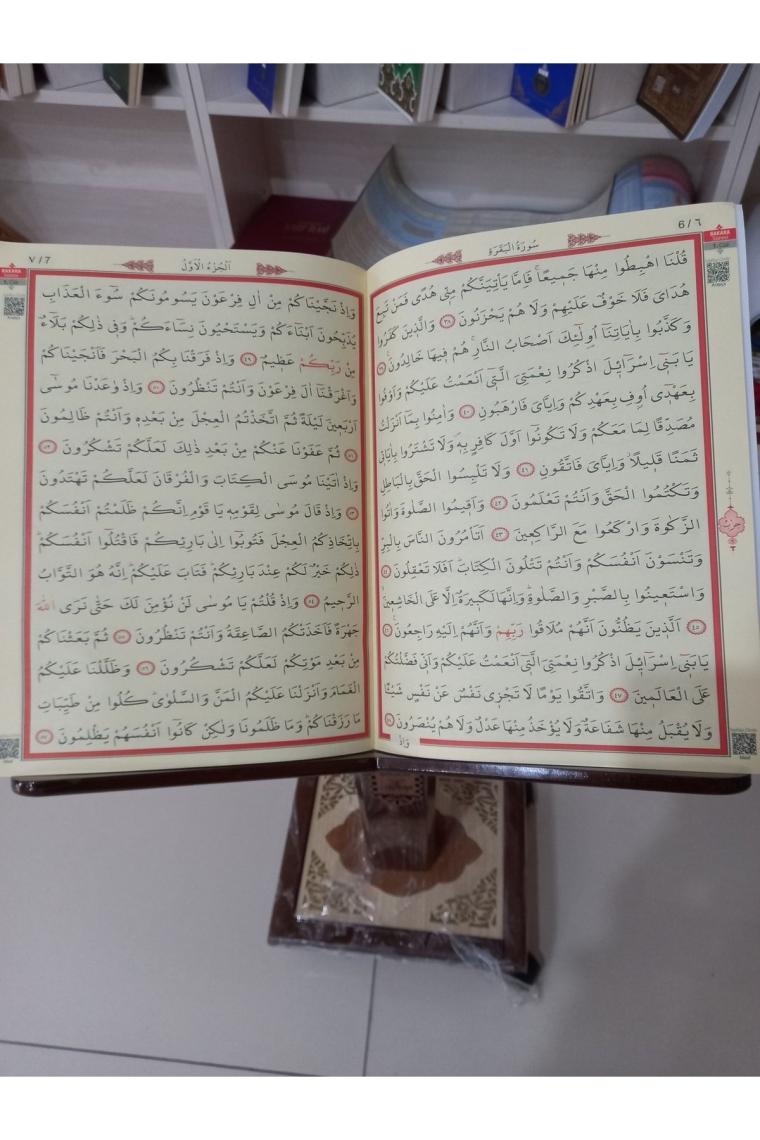 6 / ٦
سُورَةُ الْبَقَرَةِ
BAKARA
قُلْنَا اهْبِطُوا مِنْهَا جَمِيعًاۚ فَاِمَّا يَاْتِيَنَّكُمْ مِنّ۪ي هُدًى فَمَنْ تَبِعَ
هُدَايَ فَلَا خَوْفٌ عَلَيْهِمْ وَلَا هُمْ يَحْزَنُونَ ﴿٣٨﴾ وَالَّذ۪ينَ كَفَرُوا
وَكَذَّبُوا بِاٰيَاتِنَٓا اُو۬لٰٓئِكَ اَصْحَابُ النَّارِۚ هُمْ ف۪يهَا خَالِدُونَ۟ ﴿٣٩﴾
يَا بَن۪ٓي اِسْرَٓائ۪لَ اذْكُرُوا نِعْمَتِيَ الَّت۪ٓي اَنْعَمْتُ عَلَيْكُمْ وَاَوْفُوا
بِعَهْد۪ٓي اُو۫فِ بِعَهْدِكُمْ وَاِيَّايَ فَارْهَبُونِ ﴿٤٠﴾ وَاٰمِنُوا بِمَٓا اَنْزَلْتُ
مُصَدِّقًا لِمَا مَعَكُمْ وَلَا تَكُونُٓوا اَوَّلَ كَافِرٍ بِه۪ۖ وَلَا تَشْتَرُوا بِاٰيَات۪ي
ثَمَنًا قَل۪يلًاۘ وَاِيَّايَ فَاتَّقُونِ ﴿٤١﴾ وَلَا تَلْبِسُوا الْحَقَّ بِالْبَاطِلِ
وَتَكْتُمُوا الْحَقَّ وَاَنْتُمْ تَعْلَمُونَ ﴿٤٢﴾ وَاَق۪يمُوا الصَّلٰوةَ وَاٰتُوا
الزَّكٰوةَ وَارْكَعُوا مَعَ الرَّاكِع۪ينَ ﴿٤٣﴾ اَتَاْمُرُونَ النَّاسَ بِالْبِرِّ
وَتَنْسَوْنَ اَنْفُسَكُمْ وَاَنْتُمْ تَتْلُونَ الْكِتَابَۜ اَفَلَا تَعْقِلُونَ ﴿٤٤﴾
وَاسْتَع۪ينُوا بِالصَّبْرِ وَالصَّلٰوةِۜ وَاِنَّهَا لَكَب۪يرَةٌ اِلَّا عَلَى الْخَاشِع۪ينَۙ
﴿٤٥﴾ اَلَّذ۪ينَ يَظُنُّونَ اَنَّهُمْ مُلَاقُوا رَبِّهِمْ وَاَنَّهُمْ اِلَيْهِ رَاجِعُونَ۟ ﴿٤٦﴾
يَا بَن۪ٓي اِسْرَٓائ۪لَ اذْكُرُوا نِعْمَتِيَ الَّت۪ٓي اَنْعَمْتُ عَلَيْكُمْ وَاَنّ۪ي فَضَّلْتُكُمْ
عَلَى الْعَالَم۪ينَ ﴿٤٧﴾ وَاتَّقُوا يَوْمًا لَا تَجْز۪ي نَفْسٌ عَنْ نَفْسٍ شَيْـًٔا
وَلَا يُقْبَلُ مِنْهَا شَفَاعَةٌ وَلَا يُؤْخَذُ مِنْهَا عَدْلٌ وَلَا هُمْ يُنْصَرُونَ ﴿٤٨﴾
وَاِذْ
حِزْبٌ
٧ / 7
اَلْجُزْءُ الْاَوَّلُ
BAKARA
وَاِذْ نَجَّيْنَاكُمْ مِنْ اٰلِ فِرْعَوْنَ يَسُومُونَكُمْ سُٓوءَ الْعَذَابِ
يُذَبِّحُونَ اَبْنَٓاءَكُمْ وَيَسْتَحْيُونَ نِسَٓاءَكُمْۜ وَف۪ي ذٰلِكُمْ بَلَٓاءٌ
مِنْ رَبِّكُمْ عَظ۪يمٌ ﴿٤٩﴾ وَاِذْ فَرَقْنَا بِكُمُ الْبَحْرَ فَاَنْجَيْنَاكُمْ
وَاَغْرَقْنَٓا اٰلَ فِرْعَوْنَ وَاَنْتُمْ تَنْظُرُونَ ﴿٥٠﴾ وَاِذْ وٰعَدْنَا مُوسٰٓى
اَرْبَع۪ينَ لَيْلَةً ثُمَّ اتَّخَذْتُمُ الْعِجْلَ مِنْ بَعْدِه۪ وَاَنْتُمْ ظَالِمُونَ
﴿٥١﴾ ثُمَّ عَفَوْنَا عَنْكُمْ مِنْ بَعْدِ ذٰلِكَ لَعَلَّكُمْ تَشْكُرُونَ ﴿٥٢﴾
وَاِذْ اٰتَيْنَا مُوسَى الْكِتَابَ وَالْفُرْقَانَ لَعَلَّكُمْ تَهْتَدُونَ
﴿٥٣﴾ وَاِذْ قَالَ مُوسٰى لِقَوْمِه۪ يَا قَوْمِ اِنَّكُمْ ظَلَمْتُمْ اَنْفُسَكُمْ
بِاتِّخَاذِكُمُ الْعِجْلَ فَتُوبُٓوا اِلٰى بَارِئِكُمْ فَاقْتُلُٓوا اَنْفُسَكُمْۜ
ذٰلِكُمْ خَيْرٌ لَكُمْ عِنْدَ بَارِئِكُمْۜ فَتَابَ عَلَيْكُمْۜ اِنَّهُ هُوَ التَّوَّابُ
الرَّح۪يمُ ﴿٥٤﴾ وَاِذْ قُلْتُمْ يَا مُوسٰى لَنْ نُؤْمِنَ لَكَ حَتّٰى نَرَى اللّٰهَ
جَهْرَةً فَاَخَذَتْكُمُ الصَّاعِقَةُ وَاَنْتُمْ تَنْظُرُونَ ﴿٥٥﴾ ثُمَّ بَعَثْنَاكُمْ
مِنْ بَعْدِ مَوْتِكُمْ لَعَلَّكُمْ تَشْكُرُونَ ﴿٥٦﴾ وَظَلَّلْنَا عَلَيْكُمُ
الْغَمَامَ وَاَنْزَلْنَا عَلَيْكُمُ الْمَنَّ وَالسَّلْوٰىۜ كُلُوا مِنْ طَيِّبَاتِ
مَا رَزَقْنَاكُمْۜ وَمَا ظَلَمُونَا وَلٰكِنْ كَانُٓوا اَنْفُسَهُمْ يَظْلِمُونَ ﴿٥٧﴾